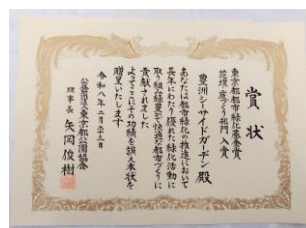 賞状
東京都都市緑化基金賞
花壇・庭づくり部門 入賞
豊洲シーサイドガーデン殿
あなたは都市緑化の推進において
長年にわたり優れた緑化活動に
取り組み緑豊かで快適な都市づくりに
貢献されました
よってここにその功績を讃え本状を
贈呈いたします
令和八年二月二十三日
公益財団法人東京都公園協会
理事長 矢岡俊樹